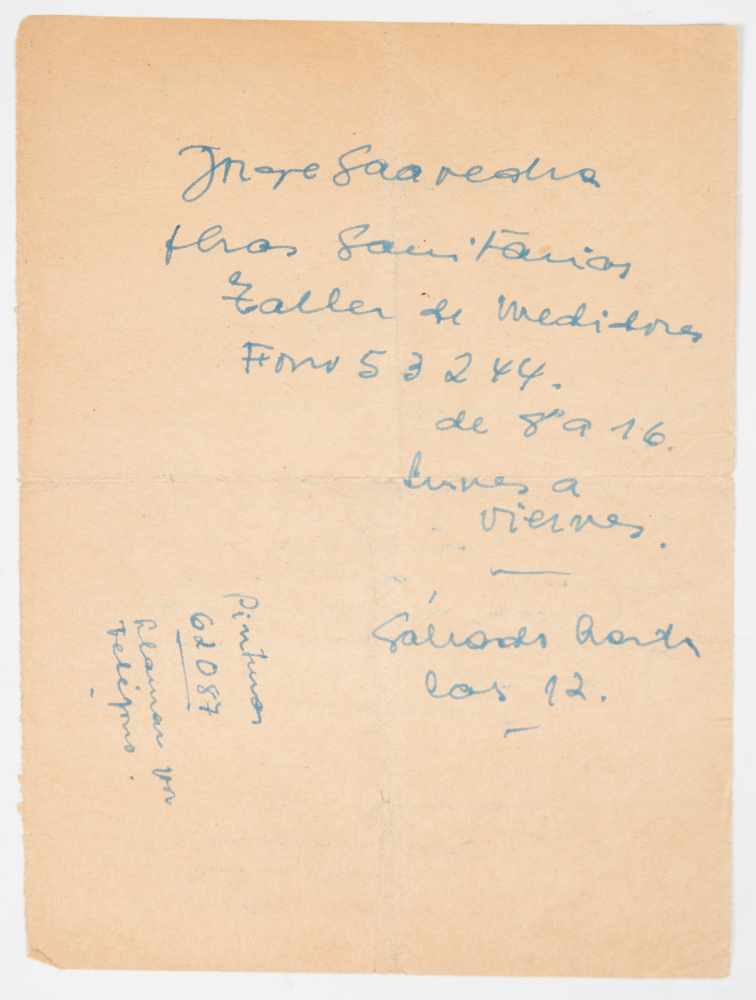 Jorge Saavedra
Obras Sanitarias
Taller de Medidores
Fono 53244.
de 8 a 16.
Lunes a
viernes.
Sábado hasta
las 12.
Pinturas
62087
Llamar por
Teléfono.